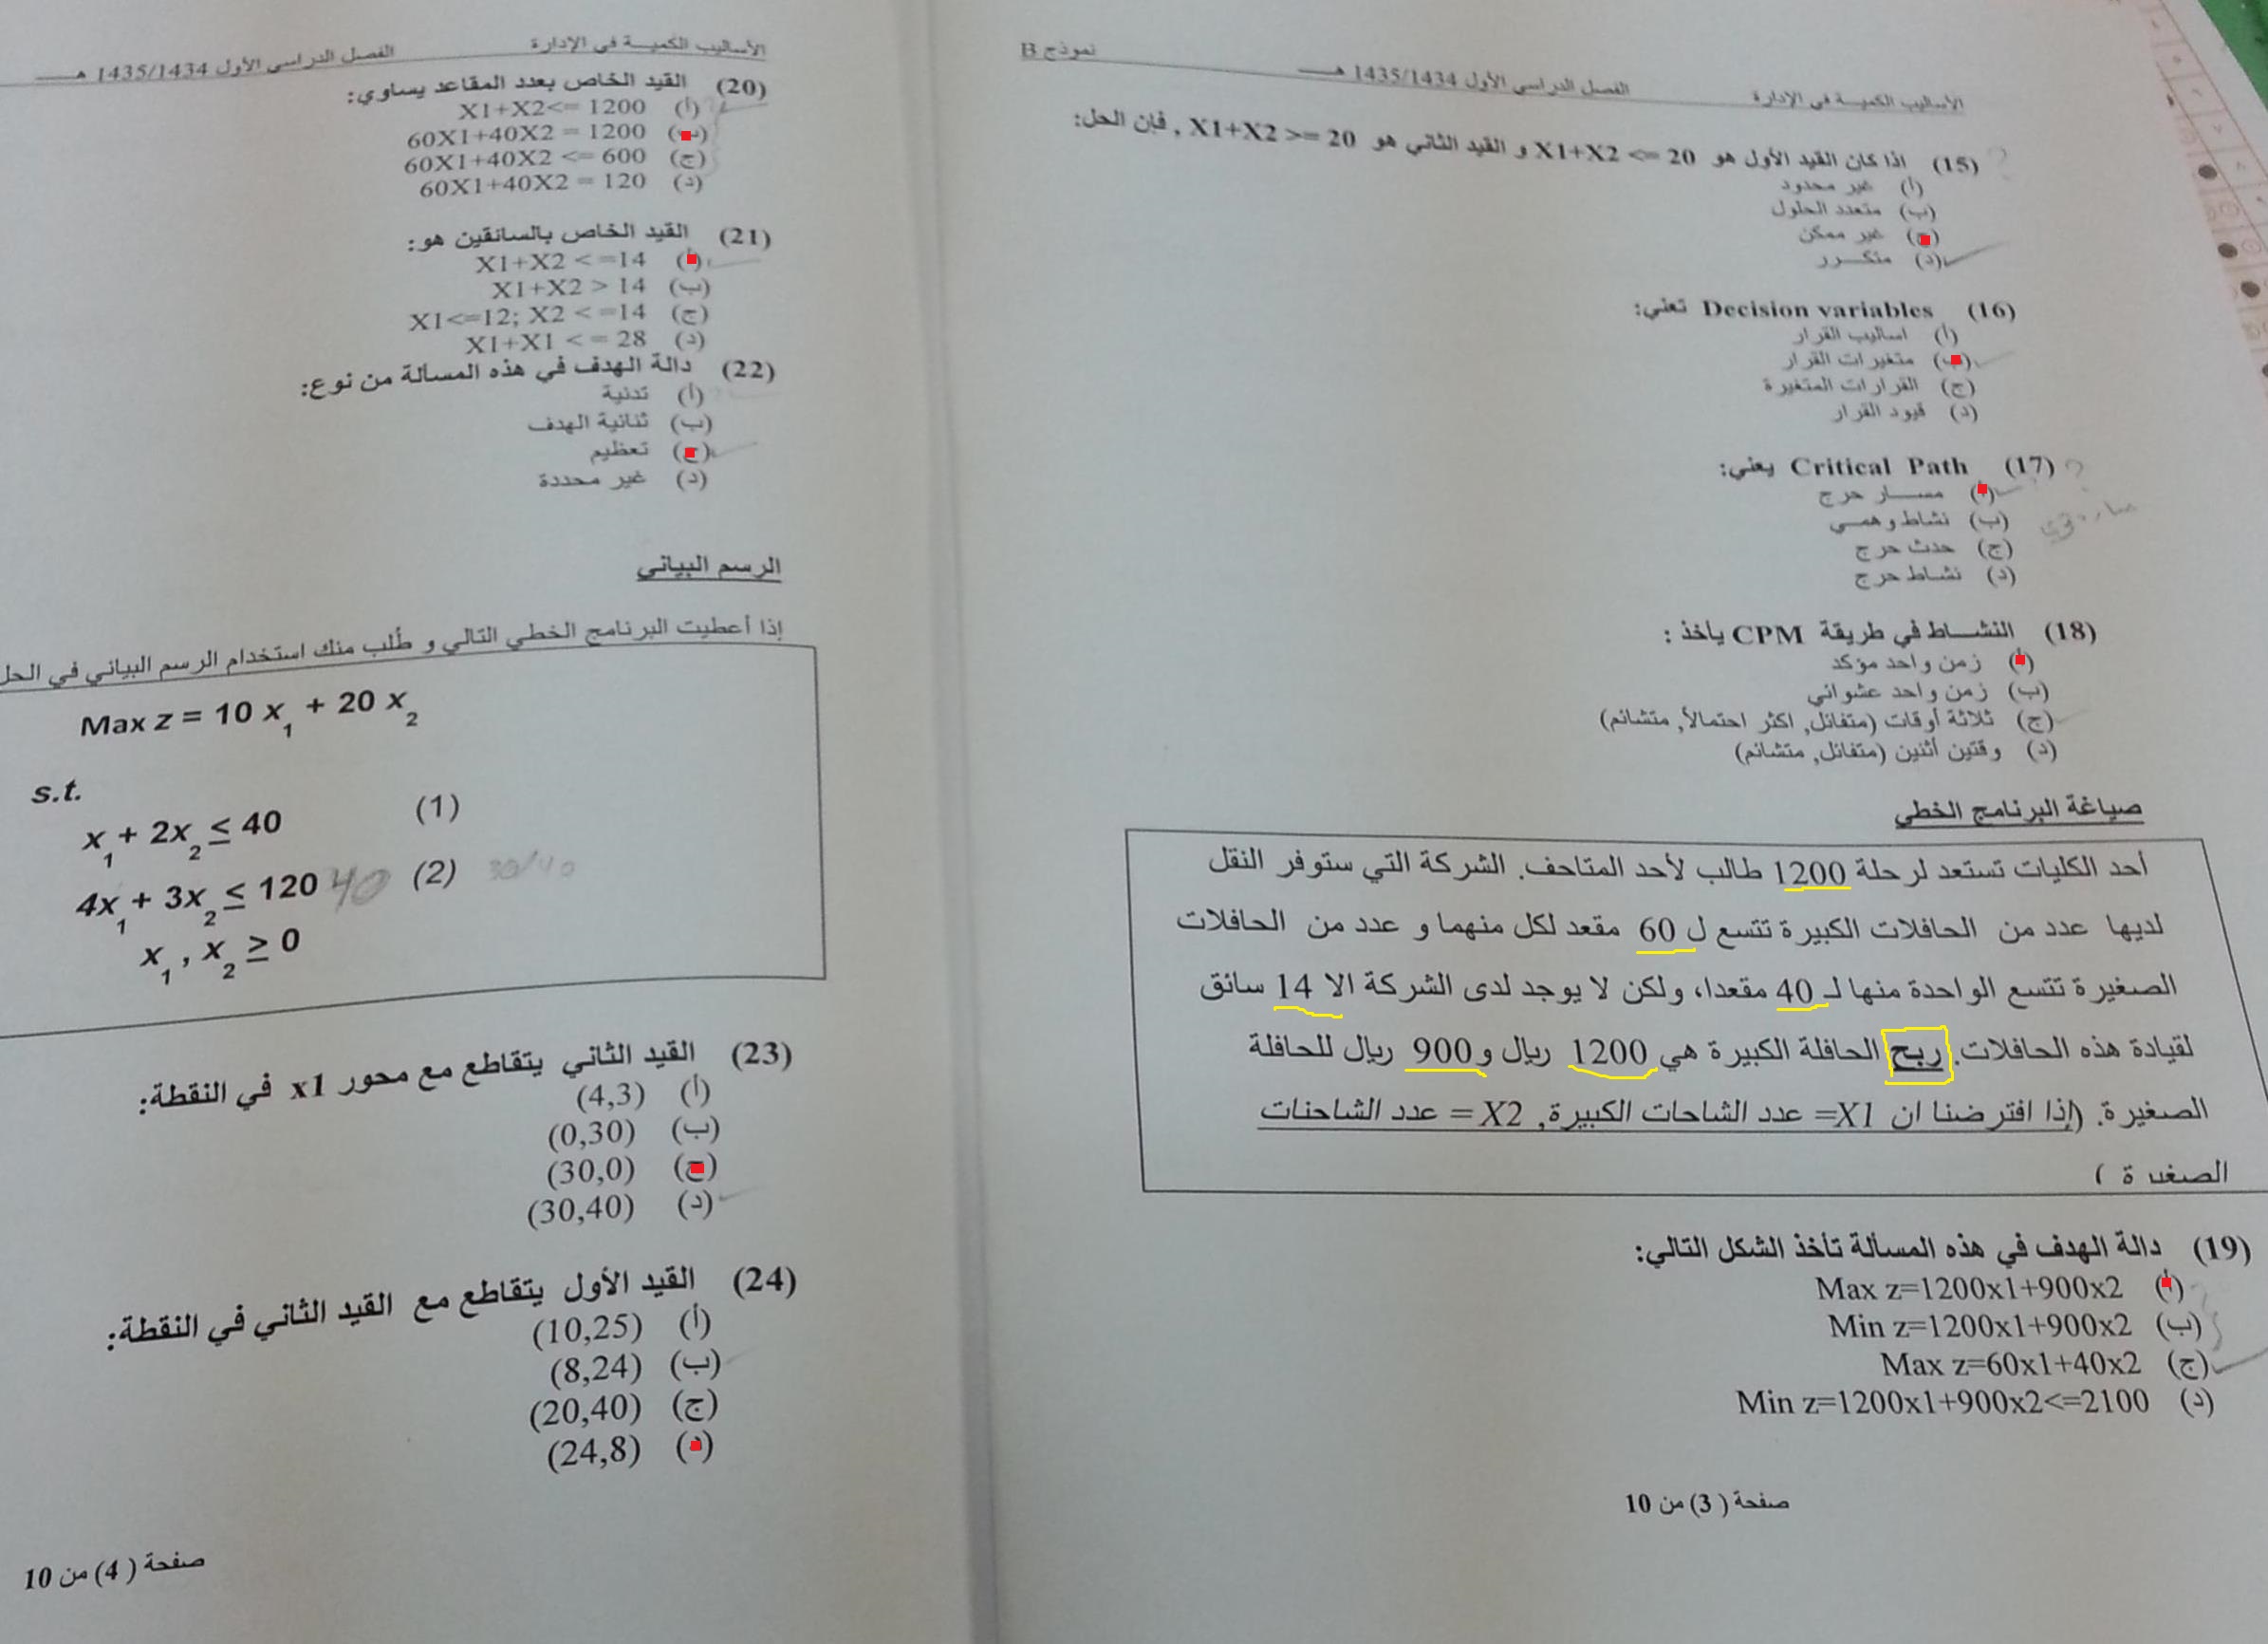 الأساليب الكميـــة في الإدارة الفصل الدراسي الأول 1435/1434 هـــ نموذج B
(15) اذا كان القيد الأول هو X1+X2 <= 20 و القيد الثاني هو X1+X2 >= 20 , فإن الحل:
(أ) غير محدود
(ب) متعدد الحلول
(ج) غير ممكن
(د) متكـــرر
(16) Decision variables تعني:
(أ) اساليب القرار
(ب) متغيرات القرار
(ج) القرارات المتغيرة
(د) قيود القرار
(17) Critical Path يعني:
(أ) مســـار حرج
(ب) نشاط وهمـي
(ج) حدث حرج
(د) نشاط حرج
(18) النشـــاط في طريقة CPM ياخذ :
(أ) زمن واحد مؤكد
(ب) زمن واحد عشوائي
(ج) ثلاثة أوقات (متفائل, اكثر احتمالاً, متشائم)
(د) وقتين أثنين (متفائل, متشائم)
صياغة البرنامج الخطي
أحد الكليات تستعد لرحلة 1200 طالب لأحد المتاحف. الشركة التي ستوفر النقل
لديها عدد من الحافلات الكبيرة تتسع ل 60 مقعد لكل منهما و عدد من الحافلات
الصغيرة تتسع الواحدة منها لـ 40 مقعدا، ولكن لا يوجد لدى الشركة الا 14 سائق
لقيادة هذه الحافلات. ربح الحافلة الكبيرة هي 1200 ريال و 900 ريال للحافلة
الصغيرة. (إذا افترضنا ان X1= عدد الشاحات الكبيرة, X2 = عدد الشاحنات
الصغيرة )
(19) دالة الهدف في هذه المسألة تأخذ الشكل التالي:
(أ) Max z=1200x1+900x2
(ب) Min z=1200x1+900x2
(ج) Max z=60x1+40x2
(د) Min z=1200x1+900x2<=2100
صفحة ( 3) من 10
الأساليب الكميـــة في الإدارة الفصل الدراسي الأول 1435/1434 هـــ
(20) القيد الخاص بعدد المقاعد يساوي:
(أ) X1+X2<= 1200
(ب) 60X1+40X2 = 1200
(ج) 60X1+40X2 <= 600
(د) 60X1+40X2 = 120
(21) القيد الخاص بالسائقين هو:
(أ) X1+X2 < =14
(ب) X1+X2 > 14
(ج) X1<=12; X2 < =14
(د) X1+X1 < = 28
(22) دالة الهدف في هذه المسألة من نوع:
(أ) تدنية
(ب) ثنائية الهدف
(ج) تعظيم
(د) غير محددة
الرسم البياني
إذا أعطيت البرنامج الخطي التالي و طُلب منك استخدام الرسم البياني في الحل
Max z = 10 x1 + 20 x2
s.t.
x1 + 2x2 ≤ 40 (1)
4x1 + 3x2 ≤ 120 40 (2) 30/40
x1 , x2 ≥ 0
(23) القيد الثاني يتقاطع مع محور x1 في النقطة:
(أ) (4,3)
(ب) (0,30)
(ج) (30,0)
(د) (30,40)
(24) القيد الأول يتقاطع مع القيد الثاني في النقطة:
(أ) (10,25)
(ب) (8,24)
(ج) (20,40)
(د) (24,8)
صفحة ( 4) من 10